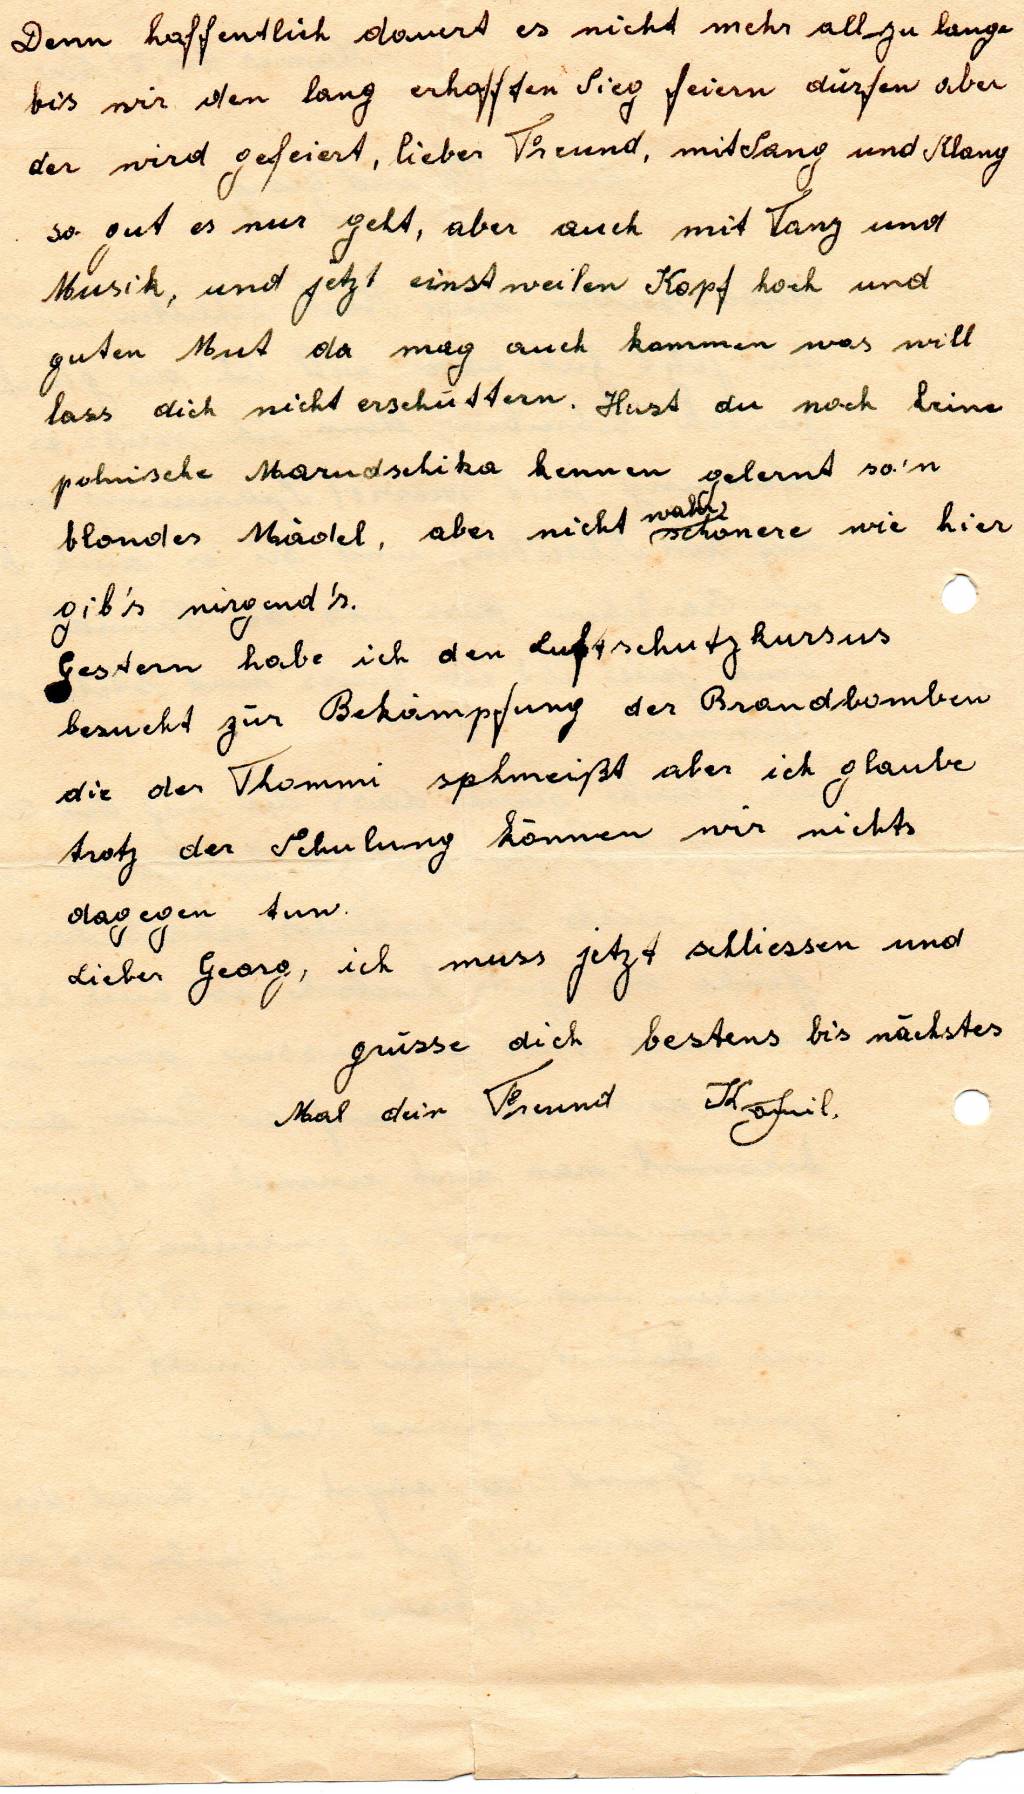 Denn hoffentlich dauert es nicht mehr all zu lange
bis wir den lang erhofften Sieg feiern dürfen aber
der wird gefeiert, lieber Freund, mit Sang und Klang
so gut es nur geht, aber auch mit Tanz und
Musik, und jetzt einstweilen Kopf hoch und
guten Mut da mag auch kommen was will
lass dich nicht erschüttern. Hast du noch keine
polnische Marudschika kennen gelernt so'n
blondes Mädel, aber nicht wahr schönere wie hier
gib's nirgend's.
Gestern habe ich den Luftschutzkursus
besucht zur Bekämpfung der Brandbomben
die der Thommi sphmeißt aber ich glaube
trotz der Schulung können wir nichts
dagegen tun.
Lieber Georg, ich muss jetzt schliessen und
grüsse dich bestens bis nächstes
Mal dein Freund